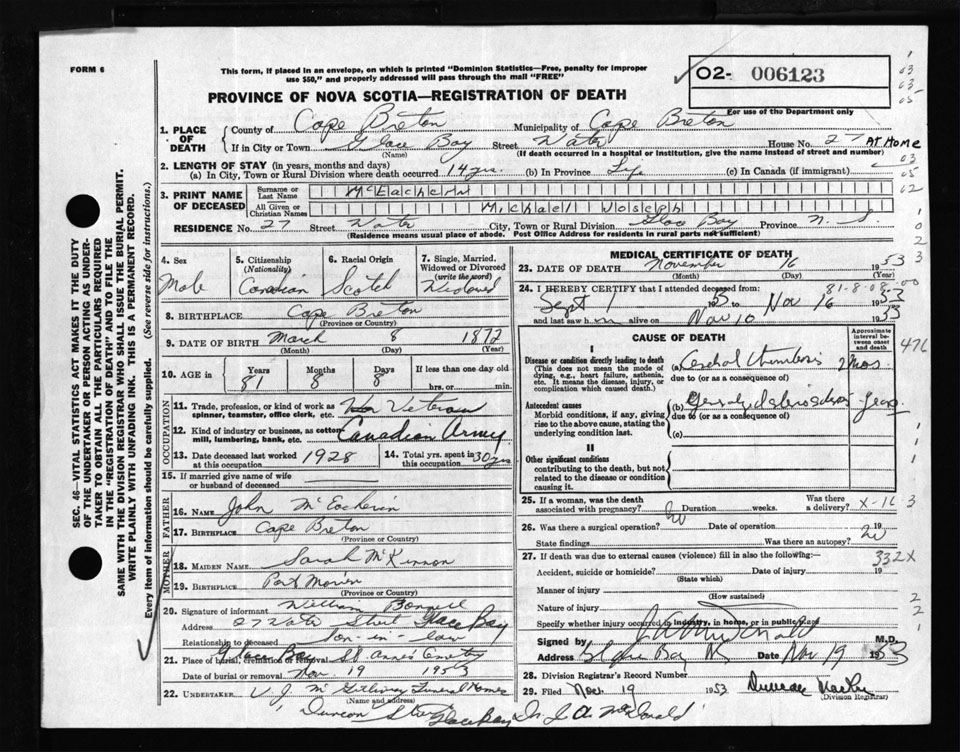 FORM 6
This form, if placed in an envelope, on which is printed "Dominion Statistics—Free, penalty for improper
use $50," and properly addressed will pass through the mail "FREE"
O2- 006123
PROVINCE OF NOVA SCOTIA—REGISTRATION OF DEATH
For use of the Department only
1. PLACE OF DEATH
County of Cape Breton Municipality of Cape Breton
If in City or Town Glace Bay Street Water House No. 27 AT HOME
(Name) (If death occurred in a hospital or institution, give the name instead of street and number)
2. LENGTH OF STAY (in years, months and days)
(a) In City, Town or Rural Division where death occurred 14 yrs. (b) In Province Life (c) In Canada (if immigrant)
3. PRINT NAME OF DECEASED
Surname or Last Name McEachern
All Given or Christian Names Michael Joseph
RESIDENCE No. 27 Street Water City, Town or Rural Division Glace Bay Province N. S.
(Residence means usual place of abode. Post Office Address for residents in rural parts not sufficient)
4. Sex Male
5. Citizenship (Nationality) Canadian
6. Racial Origin Scotch
7. Single, Married, Widowed or Divorced (write the word) Widowed
8. BIRTHPLACE Cape Breton
(Province or County)
9. DATE OF BIRTH March 8 1872
(Month) (Day) (Year)
10. AGE in Years 81 Months 8 Days 8 If less than one day old
hrs. or min.
OCCUPATION
11. Trade, profession, or kind of work as
spinner, teamster, office clerk, etc. War Veteran
12. Kind of industry or business, as cotton
mill, lumbering, bank, etc. Canadian Army
13. Date deceased last worked
at this occupation 1928
14. Total yrs. spent in
this occupation 30 yrs
15. If married give name of wife
or husband of deceased
FATHER
16. NAME John McEachern
17. BIRTHPLACE Cape Breton
(Province or County)
MOTHER
18. MAIDEN NAME Sarah McKinnon
19. BIRTHPLACE Port Morien
(Province or County)
20. Signature of informant William Bonnell
Address 27 Water Street Glace Bay
Relationship to deceased Son-in-law
21. Place of burial, cremation or removal Glace Bay St. Anne's Cemetery
Date of burial or removal Nov 19 1953
22. UNDERTAKER V. J. McGillivray Funeral Homes
(Name and address)
Duncan Glace Bay Dr. J. A. McDonald
MEDICAL CERTIFICATE OF DEATH
23. DATE OF DEATH November 16 1953
(Month) (Day) (Year)
24. I HEREBY CERTIFY that I attended deceased from: 81-8-08-00
Sept 1 1953 Nov 16 1953
and last saw him alive on Nov 10 1953
CAUSE OF DEATH
Approximate interval between onset and death
I
Disease or condition directly leading to death
(This does not mean the mode of
dying, e.g., heart failure, asthenia,
etc. It means the disease, injury, or
complication which caused death.)
(a) Cerebral Thrombosis 2 mos
due to (or as a consequence of)
Antecedent causes
Morbid conditions, if any, giving
rise to the above cause, stating the
underlying condition last.
(b) years
due to (or as a consequence of)
(c)
II
Other significant conditions
contributing to the death, but not
related to the disease or condition
causing it.
25. If a woman, was the death
associated with pregnancy? Duration weeks. Was there
a delivery? X-16
26. Was there a surgical operation? no Date of operation 19
State findings Was there an autopsy? no
27. If death was due to external causes (violence) fill in also the following:— 332X
Accident, suicide or homicide? Date of injury 19
(State which)
Manner of injury
(How sustained)
Nature of injury
Specify whether injury occurred in industry, in home, or in public place
Signed by J A McDonald M.D.
Address Glace Bay NS Date Nov 19 1953
28. Division Registrar's Record Number
29. Filed Nov. 19 1953 Duncan
(Division Registrar)
SEC. 46—VITAL STATISTICS ACT MAKES IT THE DUTY
OF THE UNDERTAKER OR PERSON ACTING AS UNDER-
TAKER TO OBTAIN ALL THE PARTICULARS REQUIRED
IN THE "REGISTRATION OF DEATH" AND TO FILE THE
SAME WITH THE DIVISION REGISTRAR WHO SHALL ISSUE THE BURIAL PERMIT.
WRITE PLAINLY WITH UNFADING INK. THIS IS A PERMANENT RECORD.
Every item of information should be carefully supplied. (See reverse side for instructions.)